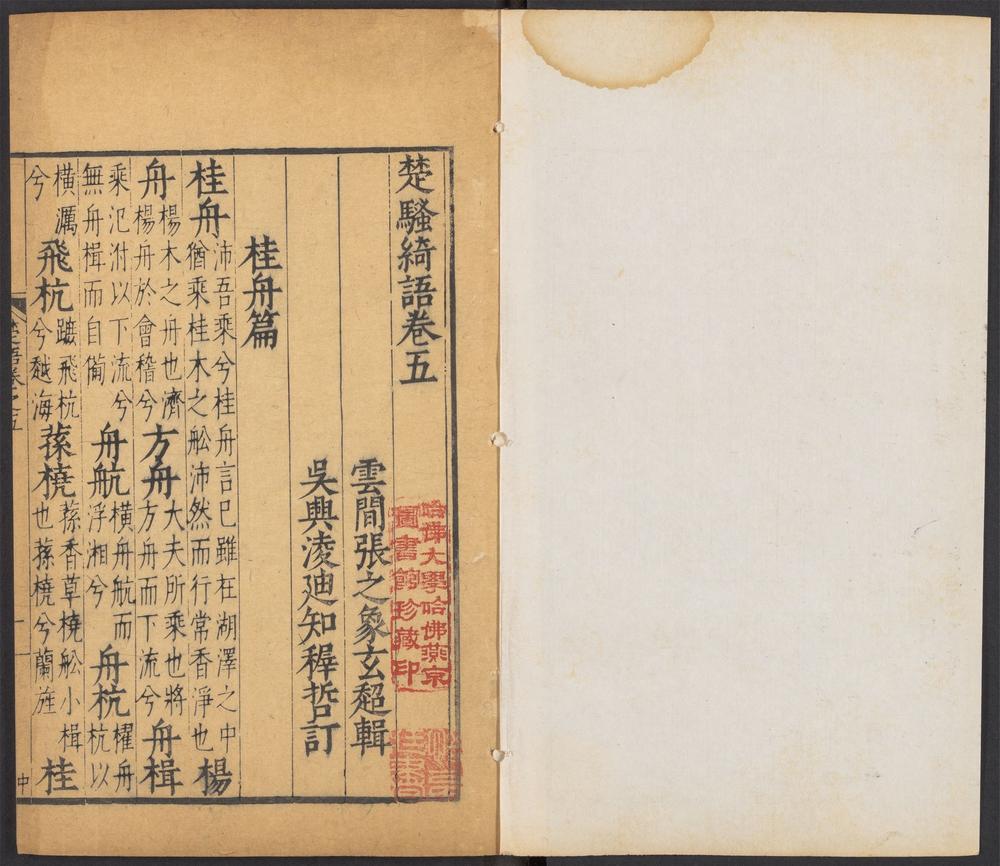 楚騷綺語卷五
雲間張之象玄超輯
吳興淩迪知稺哲訂
桂舟篇
桂舟沛吾乘兮桂舟言巳雖在湖澤之中猶乘桂木之舩沛然而行常香淨也楊
舟楊木之舟也濟楊舟於會稽兮方舟大夫所乘也將方舟而下流兮舟楫
乘氾泭以下流兮無舟楫而自俻舟航橫舟航而浮湘兮舟杭櫂舟杭以
橫濿兮飛杭蹠飛杭兮越海蓀橈蓀香草橈舩小楫也蓀橈兮蘭旌桂
楚語卷之五
中
哈佛大學哈佛燕京
圖書館珍藏印